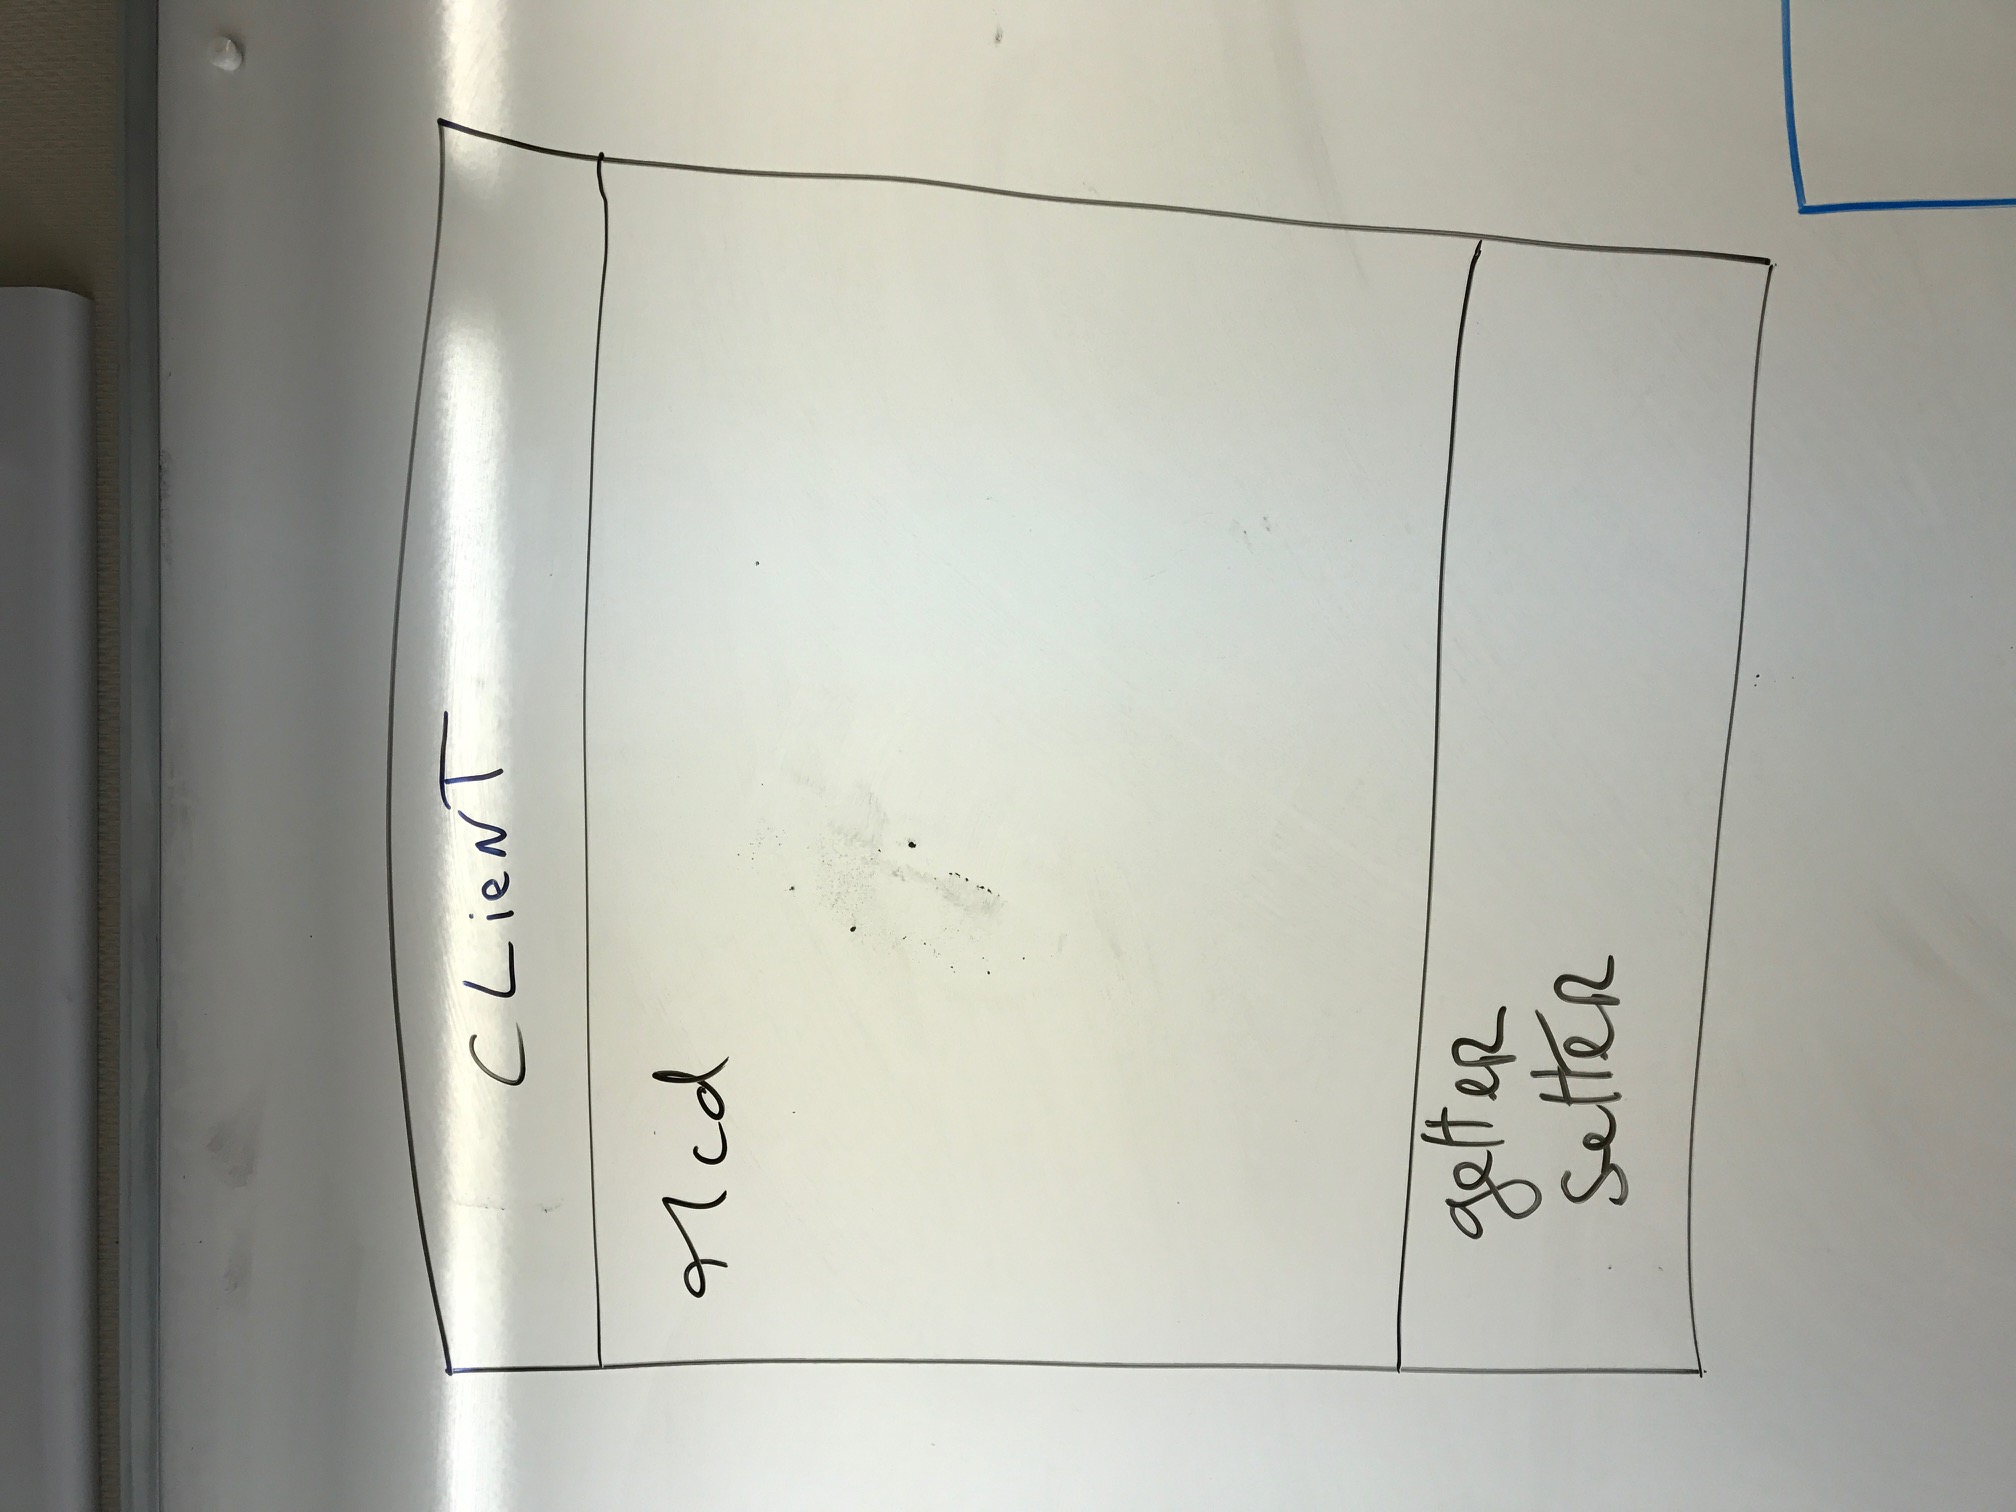 CLieNT
Mcd
getteR
setteR